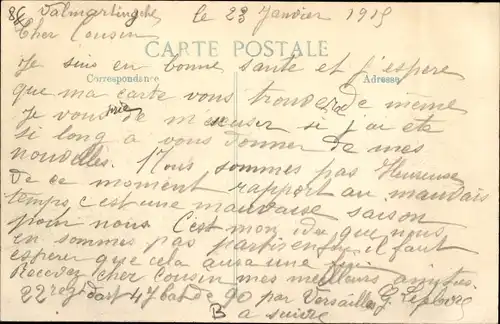 le 23 Janvier 1915
Cher Cousin
CARTE POSTALE
Je suis en bonne sante et j'espere
Correspondance Adresse
que ma carte vous trouvera de même
Je vous prie de m'escuser si j'ai eté
si long a vous donner de mes
nouvelles. Nous sommes pas Heureuse
de ce moment rapport au mauvais
temps c'est une mauvaise saison
pour nous. C'est mon idee que nous
en sommes pas il faut
esperer que cela aura une fin
Recevez cher Cousin mes meilleurs
22 47 bat de 90 par Versailles G.
B a suivre